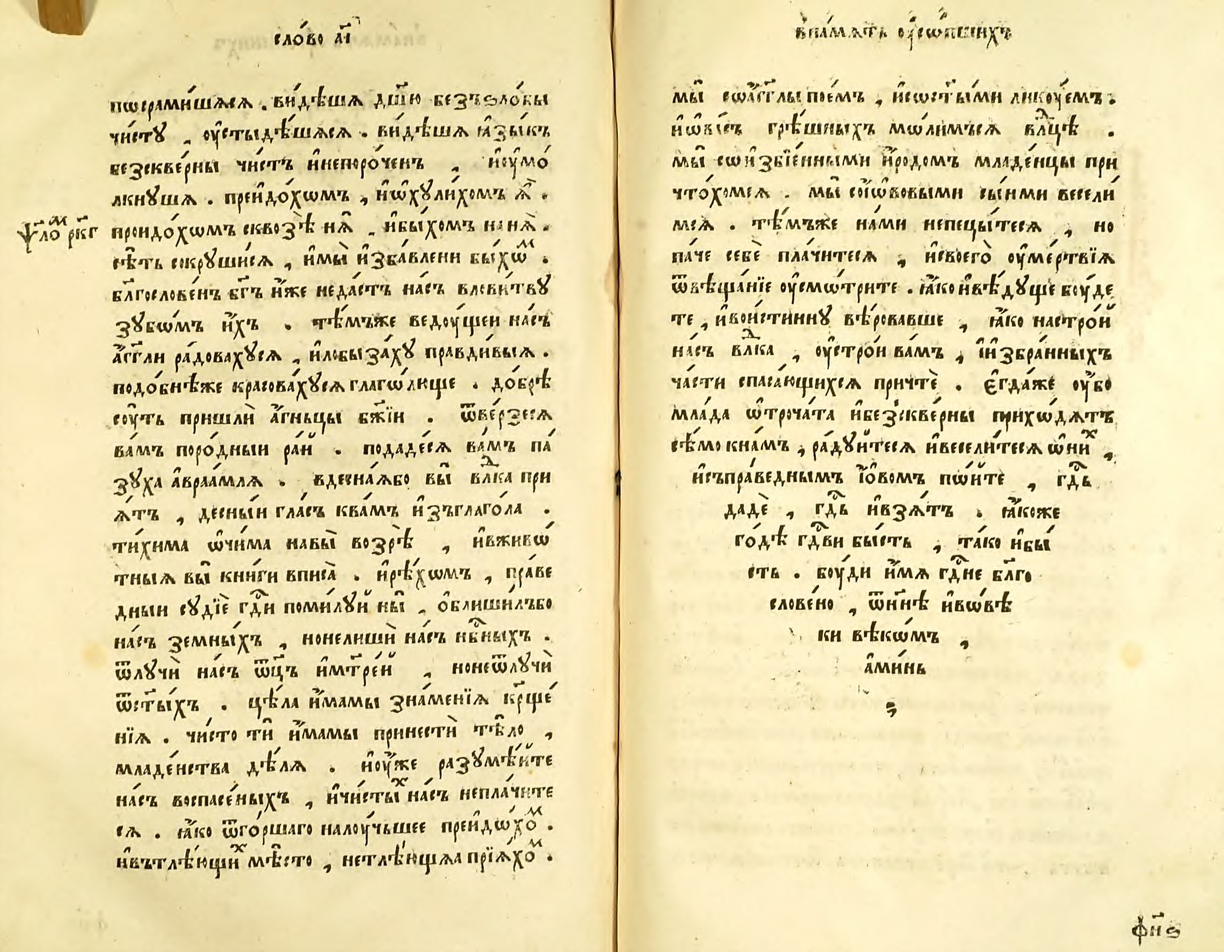 сло́во а҃і
посрами́шѧсѧ . ви́дѣшѧ дш҃ю безъѕло́бы
чи́стꙋ , оу҆стыдѣ́шѧсѧ . ви́дѣшѧ ꙗ҆зы́къ
безскве́рны чи́стъ и҆непоро́ченъ , и҆оумо́
лкнꙋшѧ . прейдо́хѡмъ , и҆ѡ҆хꙋли́хомъ ѧ҆̀ .
ѱало́м рк҃г
проидо́хѡмъ сквозѣ̀ нѧ̀ . и҆бы́хомъ нанѧ̀ .
сѣ́ть сокрꙋши́сѧ , и҆мы̀ и҆зба́влени бы́хѡм .
бл҃гослове́нъ бг҃ъ и҆́же неда́стъ на́съ вло́витвꙋ
зꙋбѡ́мъ и҆́хъ . тѣ́мъже ведоу́щеи на́съ
а҆́гг҃ли ра́довахꙋсѧ , и҆лобыза́хꙋ пра́вдивыѧ .
подо́бнѣже красова́хꙋсѧ глаго́лище . до́брѣ
соу́ть пришлѝ а҆́гньцы бж҃їи . ѿве́рзесѧ
ва́мъ поро́дныи ра́й . подаде́сѧ ва́мъ па́
зꙋха а҆враа́млѧ . вдесна́ѧбо вы̀ влⷣка при
ѧ́тъ , десны́и гла́съ ква́мъ и҆зъглаго́ла .
ти́хима ѡ҆чи́ма навы̀ возрѣ̀ , и҆вживѡ́
тныѧ вы̀ кни́ги вписа̀ . и҆рѣ́хѡмъ , пра́ве
дныи сꙋдїѐ гдⷭ҇и поми́лꙋй ны̀ , о҆блиши́лъбо
на́съ земны́хъ , нонелишѝ на́съ нбⷭ҇ныхъ .
ѿлꙋчѝ на́съ ѿц҃ъ и҆мт҃ре́й , нонеѿлꙋчѝ
ѿст҃ы́хъ . цѣ́ла и҆́мамы зна́менїѧ крⷭ҇ще́
нїѧ . чи́сто ти̑ и҆́мамы принестѝ тѣ́ло ,
младе́нства дѣ́лѧ . и҆оу҆́же разꙋмѣ́йте
на́съ воспасе́ныхъ , и҆чи́стыⷯ на́съ непла́чите
сѧ . ꙗ҆́ко ѿго́ршаго налоу́чьшее прейдо́хоⷨ .
и҆вътлѣ́ющиⷯ мѣ́сто , нетлѣ́ющѧа прїѧ́хоⷨ .
впа́мѧть оу҆со́пшихъ
мы̀ соа҆́гг҃лы пое́мъ , и҆сост҃ы́ми ликоу́емъ .
и҆ѡ҆ва́съ грѣ́шныхъ мо́лимъсѧ влⷣцѣ .
мы̀ сои҆збїе́нными и҆́родомъ младе́нцы при
что́хомсѧ . мы̀ сої҆́ѡвовыми сы́нми весели́
мсѧ . тѣ́мъже на́ми непецы́тесѧ , но
па́че себѐ пла́читесѧ , и҆своего̀ оу҆ме́ртвїѧ
ѿвѣща́нїе оу҆смо́трите . ꙗ҆́ко и҆вѣ́дꙋще боу́де
те , и҆вои́стиннꙋ вѣ́ровавше , ꙗ҆́ко настро́й
на́съ влⷣка , оу҆стро́и ва́мъ , и҆и҆збра́нныхъ
ча́сти спаса́ющихсѧ причтѐ . є҆гда́же оу҆́бо
мла́да ѻ҆троча́та и҆безскве́рны прихо́дѧтъ
сѣ́мо кна́мъ , ра́дꙋйтесѧ и҆весели́тесѧ ѡ҆ни́ⷯ ,
и҆съпра́веднымъ і҆́ѡвомъ по́йте , гдⷭ҇ь
дадѐ , гдⷭ҇ь и҆взѧ́тъ . ꙗ҆́коже
го́дѣ гдⷭ҇ви бы́сть , та́ко и҆бы́
сть . боу́ди и҆́мѧ гдⷭ҇не бл҃го
слове́но , ѿнн҃ѣ и҆вовѣ́
ки вѣкѡ́мъ ,
а҆ми́нь